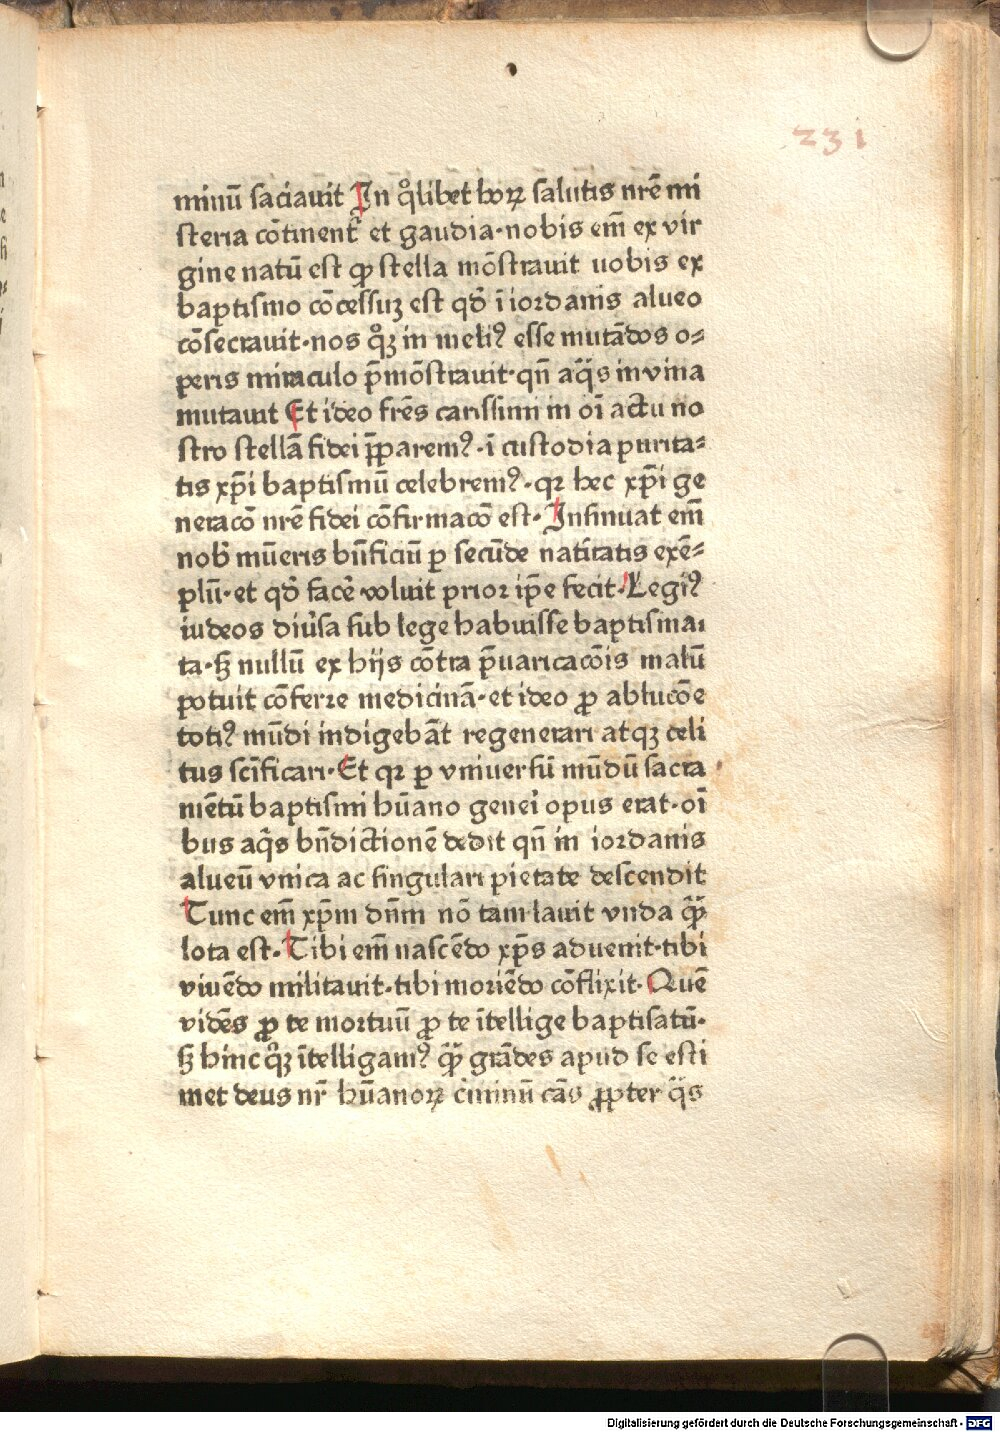 231
minū saciauit In qͦlibet hoꝝ salutis nr̄e mi
steria cōtinent᷑ et gaudia·nobis em̄ ex vir
gine natū est ꝙ stella mōstrauit uobis ex
baptismo cōcessuꝫ est qd̄ ī iordanis alueo
cōsecrauit·nos qͦꝫ in meliꝰ esse mutādos o⸗
peris miraculo p̄mōstrauit·qn̄ aq̄s in vina
mutauit Et ideo fr̄es carissimi in oī actu no
stro stellā fidei p̄paremꝰ·ī custodia purita⸗
tis xp̄i baptismū celebremꝰ·qꝛ hec xp̄i ge
neracō nr̄e fidei cōfirmacō est·Insinuat em̄
nob̄ mūeris bn̄ficiū ꝑ secūde natītatis exē⸗
plū·et qd̄ facē voluit prior ip̄e fecit·Legiꝰ
iudeos diuͥsa sub lege habuisse baptisma⸗
ta·sꝫ nullū ex hijs cōtra p̄uaricacōis malū
potuit cōferre medicinā·et ideo ꝓ ablucōe
totiꝰ mūdi indigebāt regenerari atqꝫ celi
tus scīficari·Et qꝛ ꝑ vniuersū mūdū sacra
mētū baptismi hūano geneī opus erat·oī
bus aq̄s bn̄dictionē dedit qn̄ in iordanis
alueū vnica ac singulari pietate descendit
Tunc em̄ xp̄m dn̄m nō tam lauit vnda qͣ̄
lota est·Tibi em̄ nascēdo xp̄s aduenit·tibi
viuēdo militauit·tibi moriēdo cōflixit·Quē
vidēs ꝓ te mortuū ꝓ te ītellige baptisatū·
sꝫ hinc qͦꝫ ītelligamꝰ qͣ̄ grādes apud se esti
met deus nr̄ hūanoꝝ cͥminū cās ꝓpter q̄s
Digitalisierung gefördert durch die Deutsche Forschungsgemeinschaft - DFG